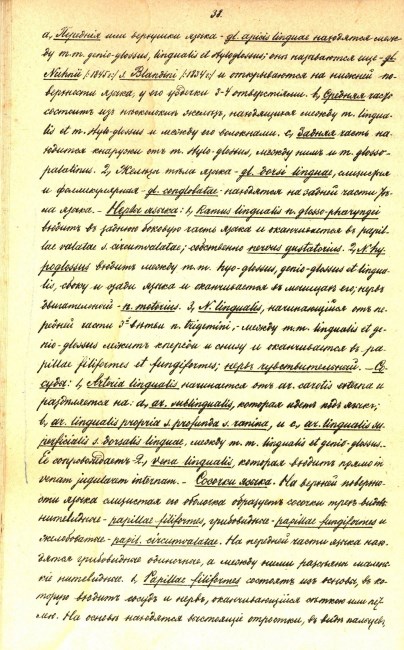 38.
а, Переднія или верхушки языка - gl. apicis linguae находятся меж-
ду m.m. genio-glossus, lingualis et styloglossus; они называются еще - gl.
Nuhnii /:1845 г:/ s. Blandini /:1834 г:/ и открываются на нижней по-
верхности языка, у его уздечки 3-4 отверстіями. b, Средняя часть
состоитъ изъ несколькихъ железъ, находящихся между m. lingua-
lis et m. stylo-glossus и между его волокнами. c, Задняя часть на-
ходится кнаружи отъ m. stylo-glossus, между нимъ и m. glosso-
palatinus. 2, Железы тѣла языка - gl. dorsi linguae, слизистыя
и фолликулярныя - gl. conglobatae - находятся на задней части
на языка. - Нервы языка: 1, Ramus lingualis n. glosso-pharyngei
входитъ въ заднюю боковую часть языка и оканчивается въ papil-
lae valatae s. circumvalatae; собственно nervus gustatorius. 2, N. hy-
poglossus входитъ между m.m. hyo-glossus, genio-glossus et lingua-
lis, сбоку и сзади языка и оканчивается въ мышцахъ его; нервъ
двигательный - n. motorius. 3, N. lingualis, начинающійся отъ пе-
редней части 3й вѣтви n. trigemini; между m.m. lingualis et ge-
nio-glossus лежитъ кпереди и снизу и оканчивается въ pa-
pillae filiformes et fungiformes; нервъ чувствительный. - Со-
суды: 1, Arteria lingualis начинается отъ ar. carotis externa и
раздѣляется на: a, ar. sublingualis, которая идетъ подъ языкъ;
b, ar. lingualis propria s. profunda s. ranina, и c, ar. lingualis su-
perficialis s. dorsalis linguae, между m.m. lingualis et genio-glossus.
Ее сопровождаетъ 2, vena lingualis, которая входитъ прямо в
venam jugularem internam. - Сосочки языка. На верхней поверхно-
сти языка слизистая его оболочка образуетъ сосочки трехъ видовъ:
нитевидные - papillae filiformes, грибовидные - papillae fungiformes и
желобоватые - papil. circumvalatae. На передней части языка нахо-
дятся грибовидные одиночные, а между ними разсѣяны малень-
кіе нитевидные. 1, Papillae filiformes состоятъ изъ основы, въ ко-
торую входитъ сосудъ и нервъ, оканчивающійся сѣткою или пет-
лею. На основы находятся настоящіе отростки, въ видѣ пальцевъ,